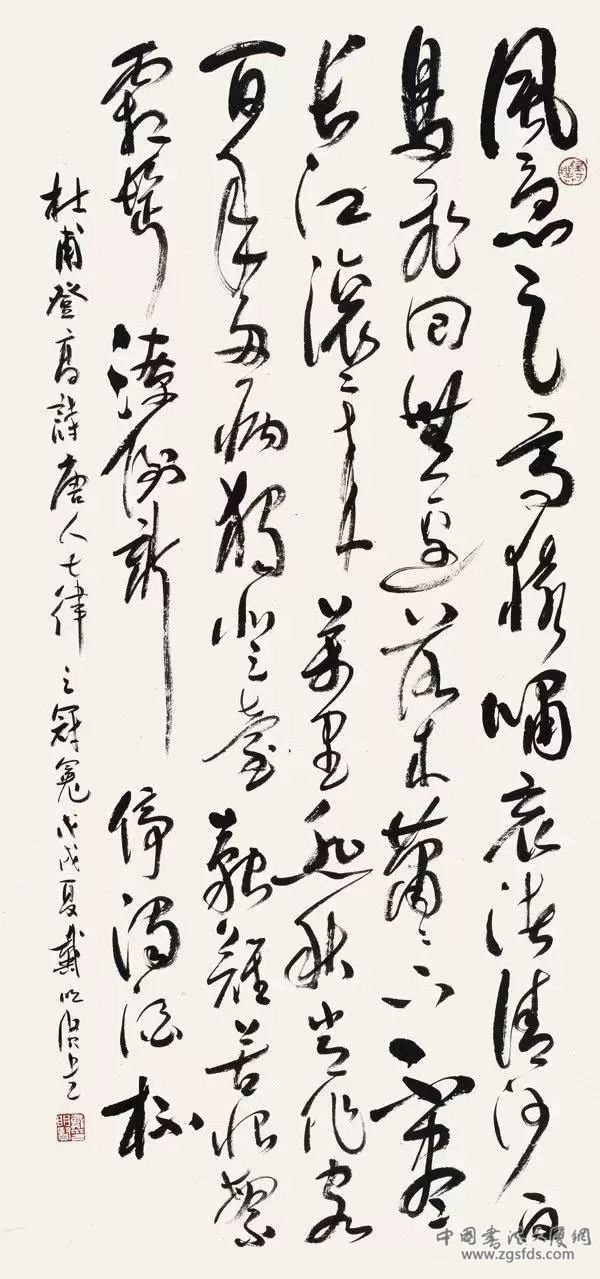 風急天高猿嘯哀渚清沙白
鳥飛回無邊落木蕭々下不盡
長江滾々來萬里悲秋常作客
百年多病獨登臺艱難苦恨繁
霜鬢潦倒新停濁酒杯
杜甫登高詩唐人七律之冠冕戊戌夏戴明賢
中國書法大廈網
www.zgsfds.com